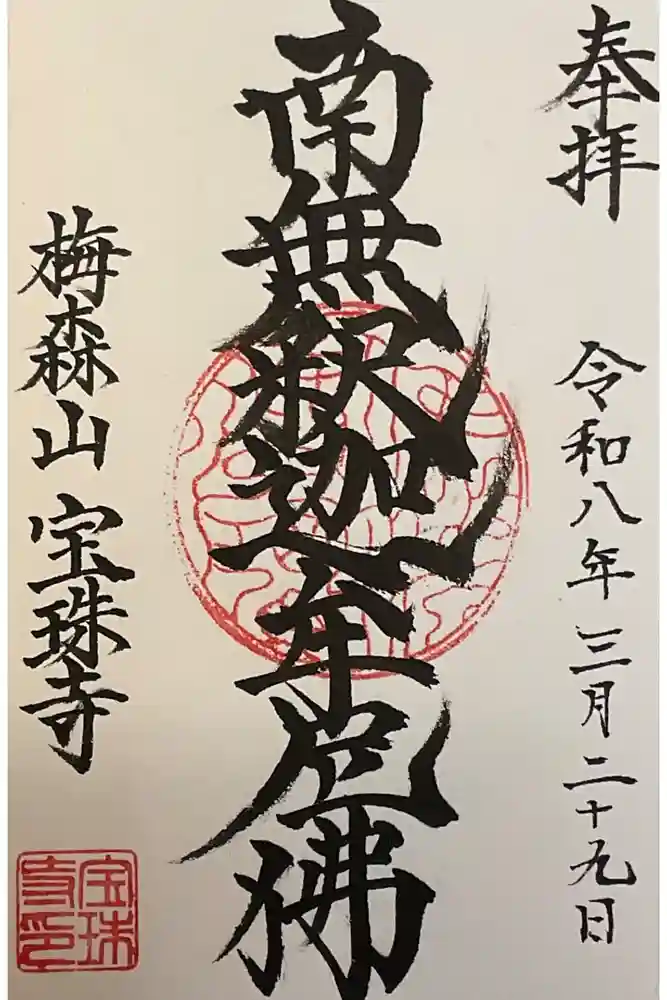 奉拝
令和八年三月二十九日
南無釈迦牟尼佛
梅森山 宝珠寺
宝珠寺印